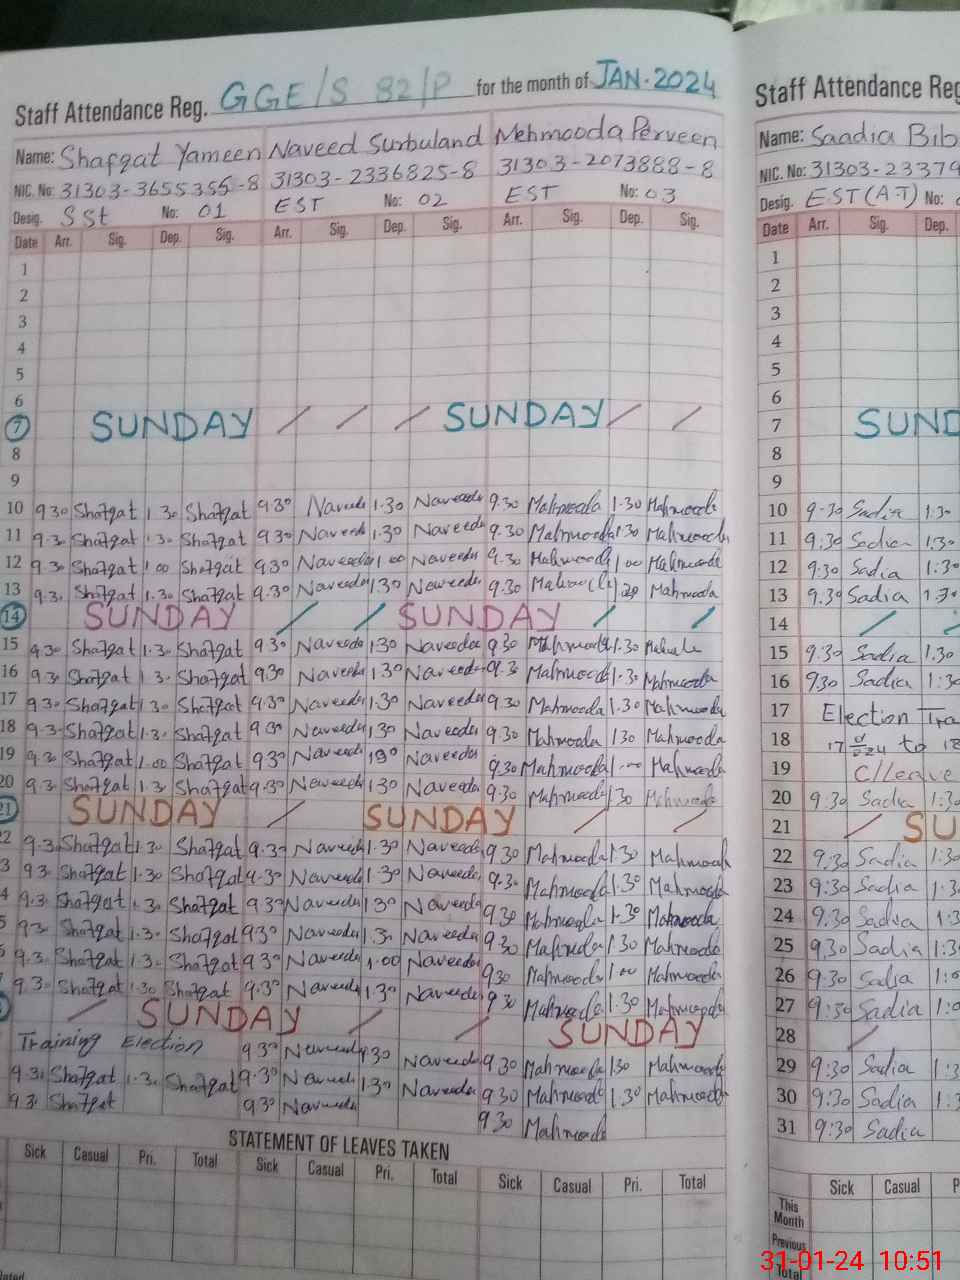 Staff Attendance Reg. GGE/S 82/P for the month of JAN-2024
Name: Shafqat Yameen Naveed Surbuland Mehmooda Perveen
NIC. No: 31303-3655355-8 31303-2336825-8 31303-2073888-8
Desig. SSt No: 01 EST No: 02 EST No: 03
Date Arr. Sig. Dep. Sig. Arr. Sig. Dep. Sig. Arr. Sig. Dep. Sig.
1
2
3
4
5
6
7 SUNDAY SUNDAY
8
9
10 9.30 Shafqat 1.30 Shafqat 9.30 Naveeda 1.30 Naveeda 9.30 Mahmooda 1.30 Mahmooda
11 9.30 Shafqat 1.30 Shafqat 9.30 Naveeda 1.30 Naveeda 9.30 Mahmooda 1.30 Mahmooda
12 9.30 Shafqat 1.00 Shafqat 9.30 Naveeda 1.00 Naveeda 9.30 Mahmooda 1.00 Mahmooda
13 9.30 Shafqat 1.30 Shafqat 9.30 Naveeda 1.30 Naveeda 9.30 Mahmooda Mahmooda
14 SUNDAY SUNDAY
15 9.30 Shafqat 1.30 Shafqat 9.30 Naveeda 1.30 Naveeda 9.30 Mahmooda 1.30
16 9.30 Shafqat 1.30 Shafqat 9.30 Naveeda 1.30 Naveeda 9.30 Mahmooda 1.30 Mahmooda
17 9.30 Shafqat 1.30 Shafqat 9.30 Naveeda 1.30 Naveeda 9.30 Mahmooda 1.30 Mahmooda
18 9.30 Shafqat 1.30 Shafqat 9.30 Naveeda 1.30 Naveeda 9.30 Mahmooda 1.30 Mahmooda
19 9.30 Shafqat 1.00 Shafqat 9.30 Naveeda Naveeda 9.30 Mahmooda 1.00 Mahmooda
20 9.30 Shafqat 1.30 Shafqat 9.30 Naveeda 1.30 Naveeda 9.30 Mahmooda 1.30 Mahmooda
21 SUNDAY SUNDAY
2 9.30 Shafqat 1.30 Shafqat 9.30 Naveeda 1.30 Naveeda 9.30 Mahmooda 1.30 Mahmooda
3 9.30 Shafqat 1.30 Shafqat 9.30 Naveeda 1.30 Naveeda 9.30 Mahmooda 1.30 Mahmooda
4 9.30 Shafqat 1.30 Shafqat 9.30 Naveeda 1.30 Naveeda 9.30 Mahmooda 1.30 Mahmooda
5 9.30 Shafqat 1.30 Shafqat 9.30 Naveeda 1.30 Naveeda 9.30 Mahmooda 1.30 Mahmooda
9.30 Shafqat 1.30 Shafqat 9.30 Naveeda 1.00 Naveeda 9.30 Mahmooda 1.00 Mahmooda
9.30 Shafqat 1.30 Shafqat 9.30 Naveeda 1.30 Naveeda 9.30 Mahmooda 1.30 Mahmooda
SUNDAY SUNDAY
Training Election 9.30 Naveeda 1.30 Naveeda 9.30 Mahmooda 1.30 Mahmooda
9.30 Shafqat 1.30 Shafqat 9.30 Naveeda 1.30 Naveeda 9.30 Mahmooda 1.30 Mahmooda
9.30 Shafqat 9.30 Naveeda 9.30 Mahmooda
STATEMENT OF LEAVES TAKEN
Sick Casual Pri. Total Sick Casual Pri. Total Sick Casual Pri. Total
Staff Attendance Reg
Name: Saadia Bib
NIC. No: 31303-23379
Desig. EST (A.T) No:
Date Arr. Sig. Dep.
1
2
3
4
5
6
7 SUND
8
9
10 9.30 Sadia 1:30
11 9:30 Sadia 1:30
12 9:30 Sadia 1:30
13 9.30 Sadia 1.30
14
15 9:30 Sadia 1:30
16 9:30 Sadia 1:30
17 Election Tra
18 to 18
19 C/Leave
20 9:30 Sadia 1:30
21 SU
22 9:30 Sadia 1:30
23 9:30 Sadia 1:3
24 9:30 Sadia 1:3
25 9.30 Sadia 1:3
26 9:30 Sadia 1:0
27 9:30 Sadia 1:0
28
29 9:30 Sadia 1:3
30 9:30 Sadia 1:3
31 9:30 Sadia
Sick Casual P
This Month
Previous
Total
31-01-24 10:51